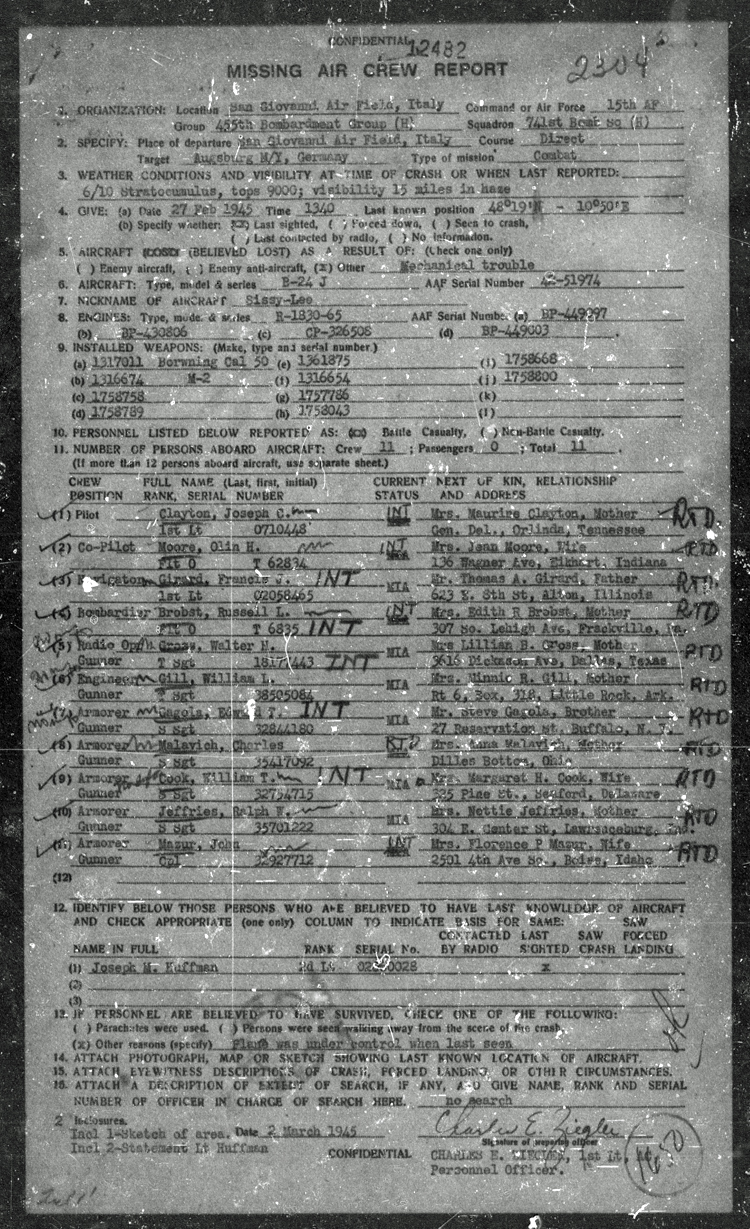 CONFIDENTIAL
12482
MISSING AIR CREW REPORT
2304
1. ORGANIZATION: Location San Giovanni Air Field, Italy Command or Air Force 15th AF
Group 455th Bombardment Group (H) Squadron 741st Bomb Sq (H)
2. SPECIFY: Place of departure San Giovanni Air Field, Italy Course Direct
Target Augsburg M/Y, Germany Type of mission Combat
3. WEATHER CONDITIONS AND VISIBILITY AT TIME OF CRASH OR WHEN LAST REPORTED:
6/10 Stratocumulus, tops 9000; visibility 15 miles in haze
4. GIVE: (a) Date 27 Feb 1945 Time 1340 Last known position 48°19'N - 10°50'E
(b) Specify whether: (xx) Last sighted, ( ) Forced down, ( ) Seen to crash,
( ) Last contacted by radio, ( ) No information.
5. AIRCRAFT (LOST) (BELIEVED LOST) AS A RESULT OF: (Check one only)
( ) Enemy aircraft, ( ) Enemy anti-aircraft, (x) Other Mechanical trouble
6. AIRCRAFT: Type, model & series B-24 J AAF Serial Number 42-51974
7. NICKNAME OF AIRCRAFT Sissy-Lee
8. ENGINES: Type, mode. & series R-1830-65 AAF Serial Number (a) BP-449097
(b) BP-430806 (c) CP-326508 (d) BP-449003
9. INSTALLED WEAPONS: (Make, type and serial number.)
(a) 1317011 Borwning Cal 50 (e) 1361875 (i) 1758668
(b) 1316674 M-2 (f) 1316654 (j) 1758800
(c) 1758758 (g) 1757786 (k)
(d) 1758789 (h) 1758043 (l)
10. PERSONNEL LISTED BELOW REPORTED AS: (xx) Battle Casualty, ( ) Non-Battle Casualty.
11. NUMBER OF PERSONS ABOARD AIRCRAFT: Crew 11 ; Passengers 0 ; Total 11 .
(If more than 12 persons aboard aircraft, use separate sheet.)
CREW FULL NAME (Last, first, initial) CURRENT NEXT OF KIN, RELATIONSHIP
POSITION RANK, SERIAL NUMBER STATUS AND ADDRESS
(1) Pilot Clayton, Joseph C. INT Mrs. Maurire Clayton, Mother RTD.
1st Lt 0710448 Gen. Del., Orlinda, Tennessee
(2) Co-Pilot Moore, Olin H. INT Mrs. Jean Moore, Wife RTD
Flt O T 62834 136 Wagner Ave, Elkhart, Indiana
(3) Navigator Girard, Francis J. INT MIA Mr. Thomas A. Girard, Father RTD.
1st Lt 02058465 623 E. 8th St, Alton, Illinois
(4) Bombardier Brobst, Russell L. INT Mrs. Edith R Brobst, Mother RTD
Flt O T 6835 INT 307 So. Lehigh Ave, Frackville, Pa.
(5) Radio Op Gross, Walter N. MIA Mrs Lillian B. Gross, Mother RTD
Gunner T Sgt 443 INT 3616 Dickason Ave, Dallas, Texas
(6) Engineer Gill, William L. MIA Mrs. Minnie R. Gill, Mother RTD
Gunner T Sgt 38505084 Rt 6, Box, 318, Little Rock, Ark.
(7) Armorer Gagola, Edward T. INT MIA Mr. Steve Gagola, Brother RTD
Gunner S Sgt 32844180 27 Reservation St. Buffalo, N. Y.
(8) Armorer Malavich, Charles RTD Mrs. Anna Malavich, Mother RTD
Gunner S Sgt 35417092 Dilles Bottom, Ohio
(9) Armorer Cook, William T. INT MIA Mrs. Margaret H. Cook, Wife RTD
Gunner S Sgt 32754715 325 Pine St., Seaford, Delaware
(10) Armorer Jeffries, Ralph W. MIA Mrs. Nettie Jeffries, Mother RTD
Gunner S Sgt 35701222 304 E. Center St, Lawrenceburg, Ind.
(11) Armorer Mazur, John INT Mrs. Florence P Mazur, Wife RTD
Gunner Cpl 32927712 2501 4th Ave So., Boise, Idaho
(12)
12. IDENTIFY BELOW THOSE PERSONS WHO ARE BELIEVED TO HAVE LAST KNOWLEDGE OF AIRCRAFT
AND CHECK APPROPRIATE (one only) COLUMN TO INDICATE BASIS FOR SAME: SAW
CONTACTED LAST SAW FORCED
NAME IN FULL RANK SERIAL No. BY RADIO SIGHTED CRASH LANDING
(1) Joseph M. Huffman 2d Lt 0028 x
(2)
(3)
13. IF PERSONNEL ARE BELIEVED TO HAVE SURVIVED, CHECK ONE OF THE FOLLOWING:
( ) Parachutes were used. ( ) Persons were seen walking away from the scene of the crash.
(x) Other reasons (specify) Plane was under control when last seen
14. ATTACH PHOTOGRAPH, MAP OR SKETCH SHOWING LAST KNOWN LOCATION OF AIRCRAFT.
15. ATTACH EYEWITNESS DESCRIPTIONS OF CRASH, FORCED LANDING, OR OTHER CIRCUMSTANCES.
16. ATTACH A DESCRIPTION OF EXTENT OF SEARCH, IF ANY, AND GIVE NAME, RANK AND SERIAL
NUMBER OF OFFICER IN CHARGE OF SEARCH HERE. no search
2 Inclosures.
Incl 1-Sketch of area. Date 2 March 1945 Charles E. Ziegler
Signature of preparing officer
Incl 2-Statement Lt Huffman CONFIDENTIAL CHARLES E. ZIEGLER, 1st Lt, AC,
Personnel Officer.